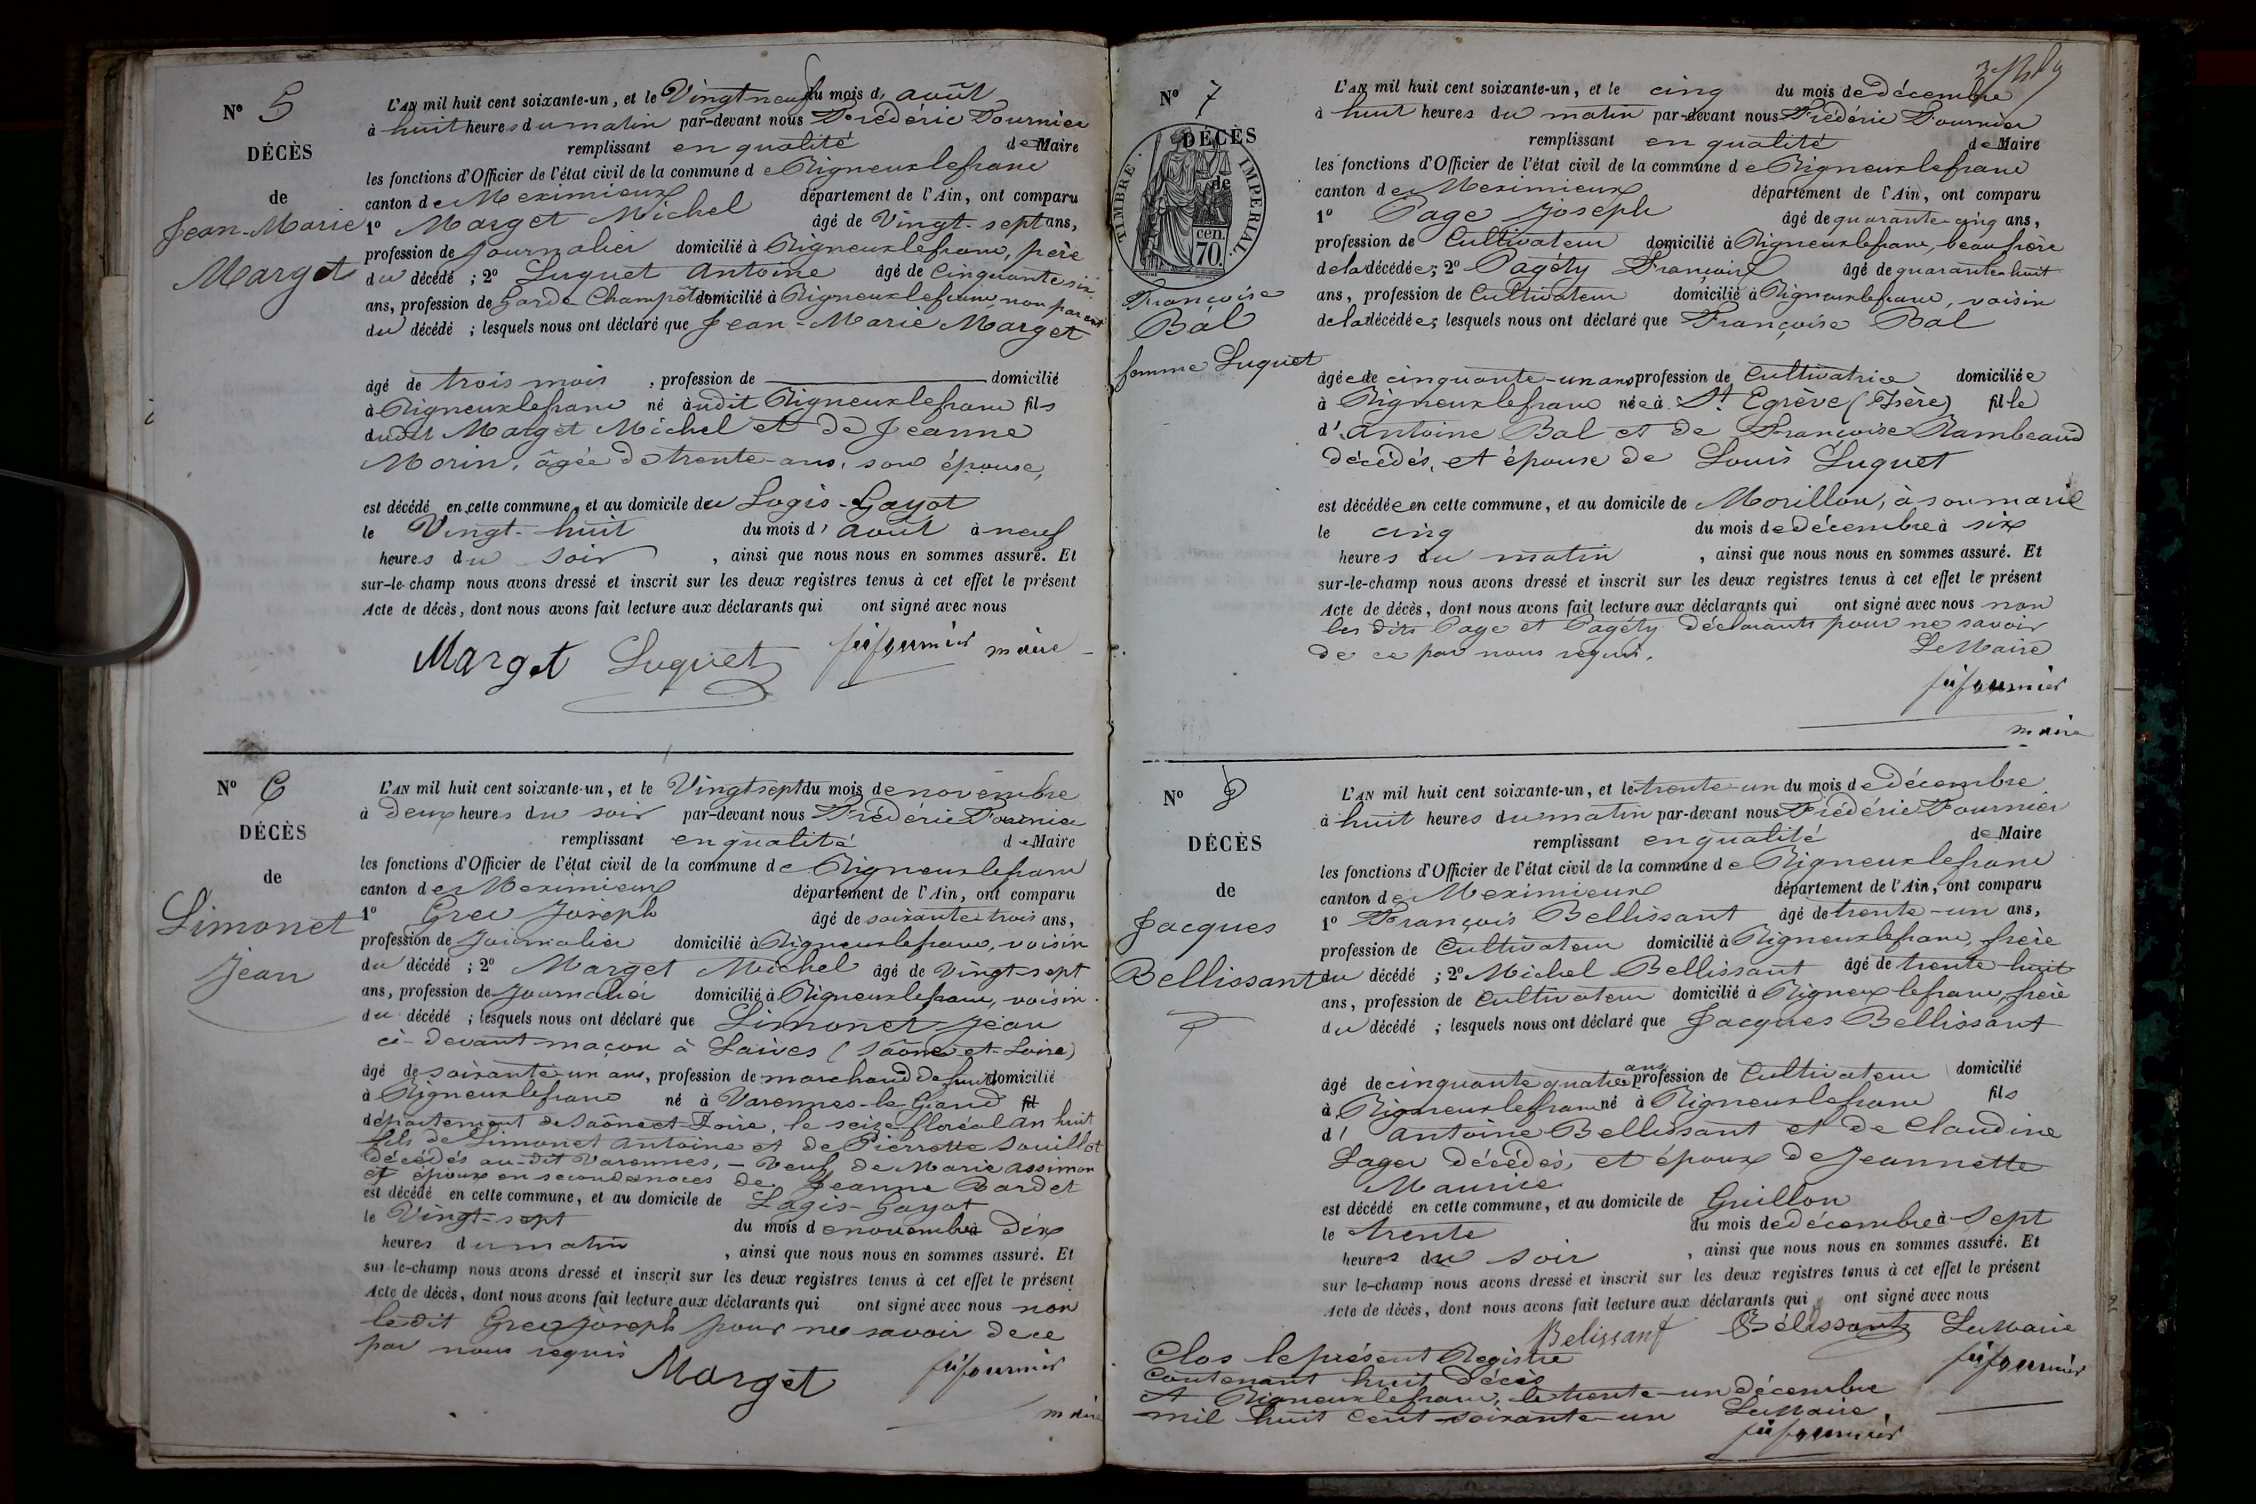 N° 5
DÉCÈS
de
Jean-Marie
Marget
L'AN mil huit cent soixante-un, et le Vingt neuf du mois d' août
à huit heures du matin par-devant nous Frédéric Fournier
remplissant en qualité de Maire
les fonctions d'Officier de l'état civil de la commune de Rigneuxlefranc
canton de Meximieux département de l'Ain, ont comparu
1° Marget Michel âgé de Vingt-sept ans,
profession de Journalier domicilié à Rigneuxlefranc, père
du décédé ; 2° Luquet Antoine âgé de Cinquante six
ans, profession de Garde Champêtre domicilié à Rigneuxlefranc non parent
du décédé ; lesquels nous ont déclaré que Jean-Marie Marget
âgé de trois mois , profession de domicilié
à Rigneuxlefranc né àudit Rigneuxlefranc fils
dudit Marget Michel et de Jeanne
Morin, âgée de trente-ans, son épouse,
est décédé en cette commune, et au domicile du Logis-Gayot
le Vingt-huit du mois d' août à neuf
heures du soir , ainsi que nous nous en sommes assuré. Et
sur-le-champ nous avons dressé et inscrit sur les deux registres tenus à cet effet le présent
Acte de décès, dont nous avons fait lecture aux déclarants qui ont signé avec nous
Marget Luquet fournier maire
N° 6
DÉCÈS
de
Limonet
Jean
L'AN mil huit cent soixante-un, et le Vingt sept du mois de novembre
à deux heures du soir par-devant nous Frédéric Fournier
remplissant en qualité de Maire
les fonctions d'Officier de l'état civil de la commune de Rigneuxlefranc
canton de Meximieux département de l'Ain, ont comparu
1° Grec Joseph âgé de soixante trois ans,
profession de Journalier domicilié à Rigneuxlefranc, voisin
du décédé ; 2° Marget Michel âgé de Vingt-sept
ans, profession de Journalier domicilié à Rigneuxlefranc, voisin
du décédé ; lesquels nous ont déclaré que Limonet Jean
ci-devant maçon à Laives (Saône-et-Loire)
âgé de soixante-un ans, profession de marchand de domicilié
à Rigneuxlefranc né à Varennes-le-Grand fil
département de Saône-et-Loire, le seize floréal an huit
fils de Limonet Antoine et de Pierrette Souillot
décédés au-dit Varennes, - Veuf de Marie Assimon
et époux en secondes noces de Jeanne Bardet
est décédé en cette commune, et au domicile de Logis-Gayot
le Vingt-sept du mois de novembre à dix
heures du matin , ainsi que nous nous en sommes assuré. Et
sur le-champ nous avons dressé et inscrit sur les deux registres tenus à cet effet le présent
Acte de décès, dont nous avons fait lecture aux déclarants qui ont signé avec nous non
ledit Grec Joseph pour ne savoir de ce
par nous requis
Marget fournier
maire
N° 7
DÉCÈS
de
TIMBRE IMPERIAL
cen.
70
Françoise
Bal
femme Luquet
L'AN mil huit cent soixante-un, et le cinq du mois de décembre
à huit heures du matin par-devant nous Frédéric Fournier
remplissant en qualité de Maire
les fonctions d'Officier de l'état civil de la commune de Rigneuxlefranc
canton de Meximieux département de l'Ain, ont comparu
1° Page Joseph âgé de quarante-cinq ans,
profession de Cultivateur domicilié à Rigneuxlefranc, beau frère
de la décédée; 2° Pagéty François âgé de quarante huit
ans, profession de Cultivateur domicilié à Rigneuxlefranc, voisin
de la décédée; lesquels nous ont déclaré que Françoise Bal
âgée de cinquante-un ans profession de Cultivatrice domiciliée
à Rigneuxlefranc née à St Egrève (Isère) fille
d' Antoine Bal et de Françoise Rambeaud
décédés, et épouse de Louis Luquet
est décédée en cette commune, et au domicile de Morillon, à son marie
le cinq du mois de décembre à six
heures du matin , ainsi que nous nous en sommes assuré. Et
sur-le-champ nous avons dressé et inscrit sur les deux registres tenus à cet effet le présent
Acte de décès, dont nous avons fait lecture aux déclarants qui ont signé avec nous non
les dits Page et Pagéty déclarants pour ne savoir
de ce par nous requis. Le Maire
fournier
maire
N° 8
DÉCÈS
de
Jacques
Bellissant
L'AN mil huit cent soixante-un, et le trente-un du mois de décembre
à huit heures du matin par-devant nous Frédéric Fournier
remplissant en qualité de Maire
les fonctions d'Officier de l'état civil de la commune de Rigneuxlefranc
canton de Meximieux département de l'Ain, ont comparu
1° François Bellissant âgé de trente-un ans,
profession de Cultivateur domicilié à Rigneuxlefranc, frère
du décédé ; 2° Michel Bellissant âgé de trente huit
ans, profession de Cultivateur domicilié à Rigneux lefranc, frère
du décédé ; lesquels nous ont déclaré que Jacques Bellissant
âgé de cinquante quatre ans profession de Cultivateur domicilié
à Rigneuxlefranc né à Rigneuxlefranc fils
d' Antoine Bellissant et de Claudine
Lager décédés, et époux de Jeannette
Maurice
est décédé en cette commune, et au domicile de Guillon
le trente du mois de décembre à Sept
heures du soir , ainsi que nous nous en sommes assuré. Et
sur le-champ nous avons dressé et inscrit sur les deux registres tenus à cet effet le présent
Acte de décès, dont nous avons fait lecture aux déclarants qui ont signé avec nous
Belissant Bélissant Le Maire
fournier
Clos le présent Registre
Contenant huit décès
A Rigneuxlefranc, le trente-un décembre
mil huit cent soixante-un Le Maire
fournier